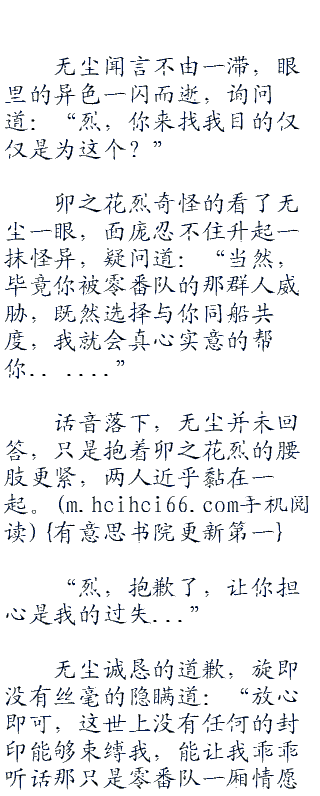 无尘闻言不由一滞，眼
里的异色一闪而逝，询问
道：“烈，你来找我目的仅
仅是为这个？”
卯之花烈奇怪的看了无
尘一眼，面庞忍不住升起一
抹怪异，疑问道：“当然，
毕竟你被零番队的那群人威
胁，既然选择与你同船共
度，我就会真心实意的帮
你.. ....”
话音落下，无尘并未回
答，只是抱着卯之花烈的腰
肢更紧，两人近乎黏在一
起。(m.hcihci66.com手机阅
读){有意思书院更新第一}
“烈，抱歉了，让你担
心是我的过失...”
无尘诚恳的道歉，旋即
没有丝毫的隐瞒道：“放心
即可，这世上没有任何的封
印能够束缚我，能让我乖乖
听话那只是零番队一厢情愿